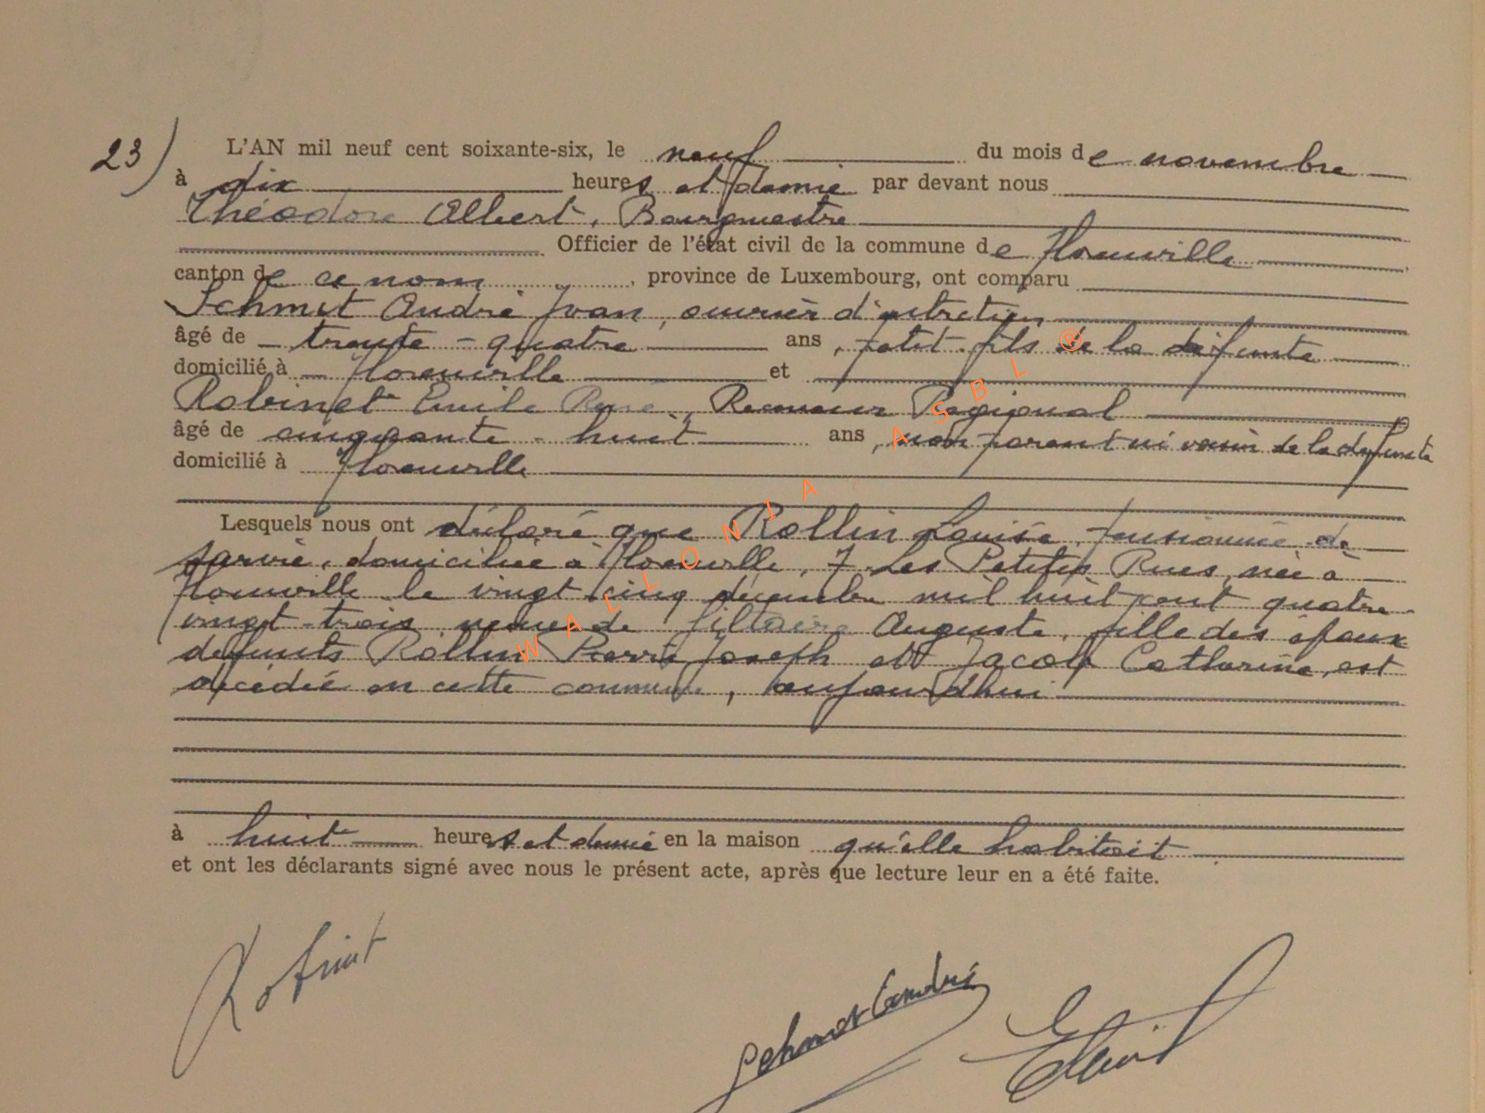 23) L'AN mil neuf cent soixante-six, le neuf du mois de novembre
à dix heures et demie par devant nous
Théodore Albert, Bourgmestre
Officier de l'état civil de la commune de Florenville
canton de ce nom, province de Luxembourg, ont comparu
Schmit André Ivan, ouvrier d'entretien
âgé de trente-quatre ans, petit-fils de la défunte
domicilié à Florenville et
Robinet Emile René, Receveur Régional
âgé de cinquante-huit ans, non parent ni voisin de la défunte
domicilié à Florenville
Lesquels nous ont déclaré que Rollin Louise, pensionnée de
survie, domiciliée à Florenville, 7 Les Petites Rues, née à
Florenville le vingt-cinq décembre mil huit cent quatre-
vingt-trois veuve de Filtaire Auguste, fille des époux
défunts Rollin Pierre Joseph et Jacob Catherine, est
décédée en cette commune, aujourd'hui
à huit heures et demie en la maison qu'elle habitait
et ont les déclarants signé avec nous le présent acte, après que lecture leur en a été faite.
Robinet
Schmit André
WALLONIA ASBL ®